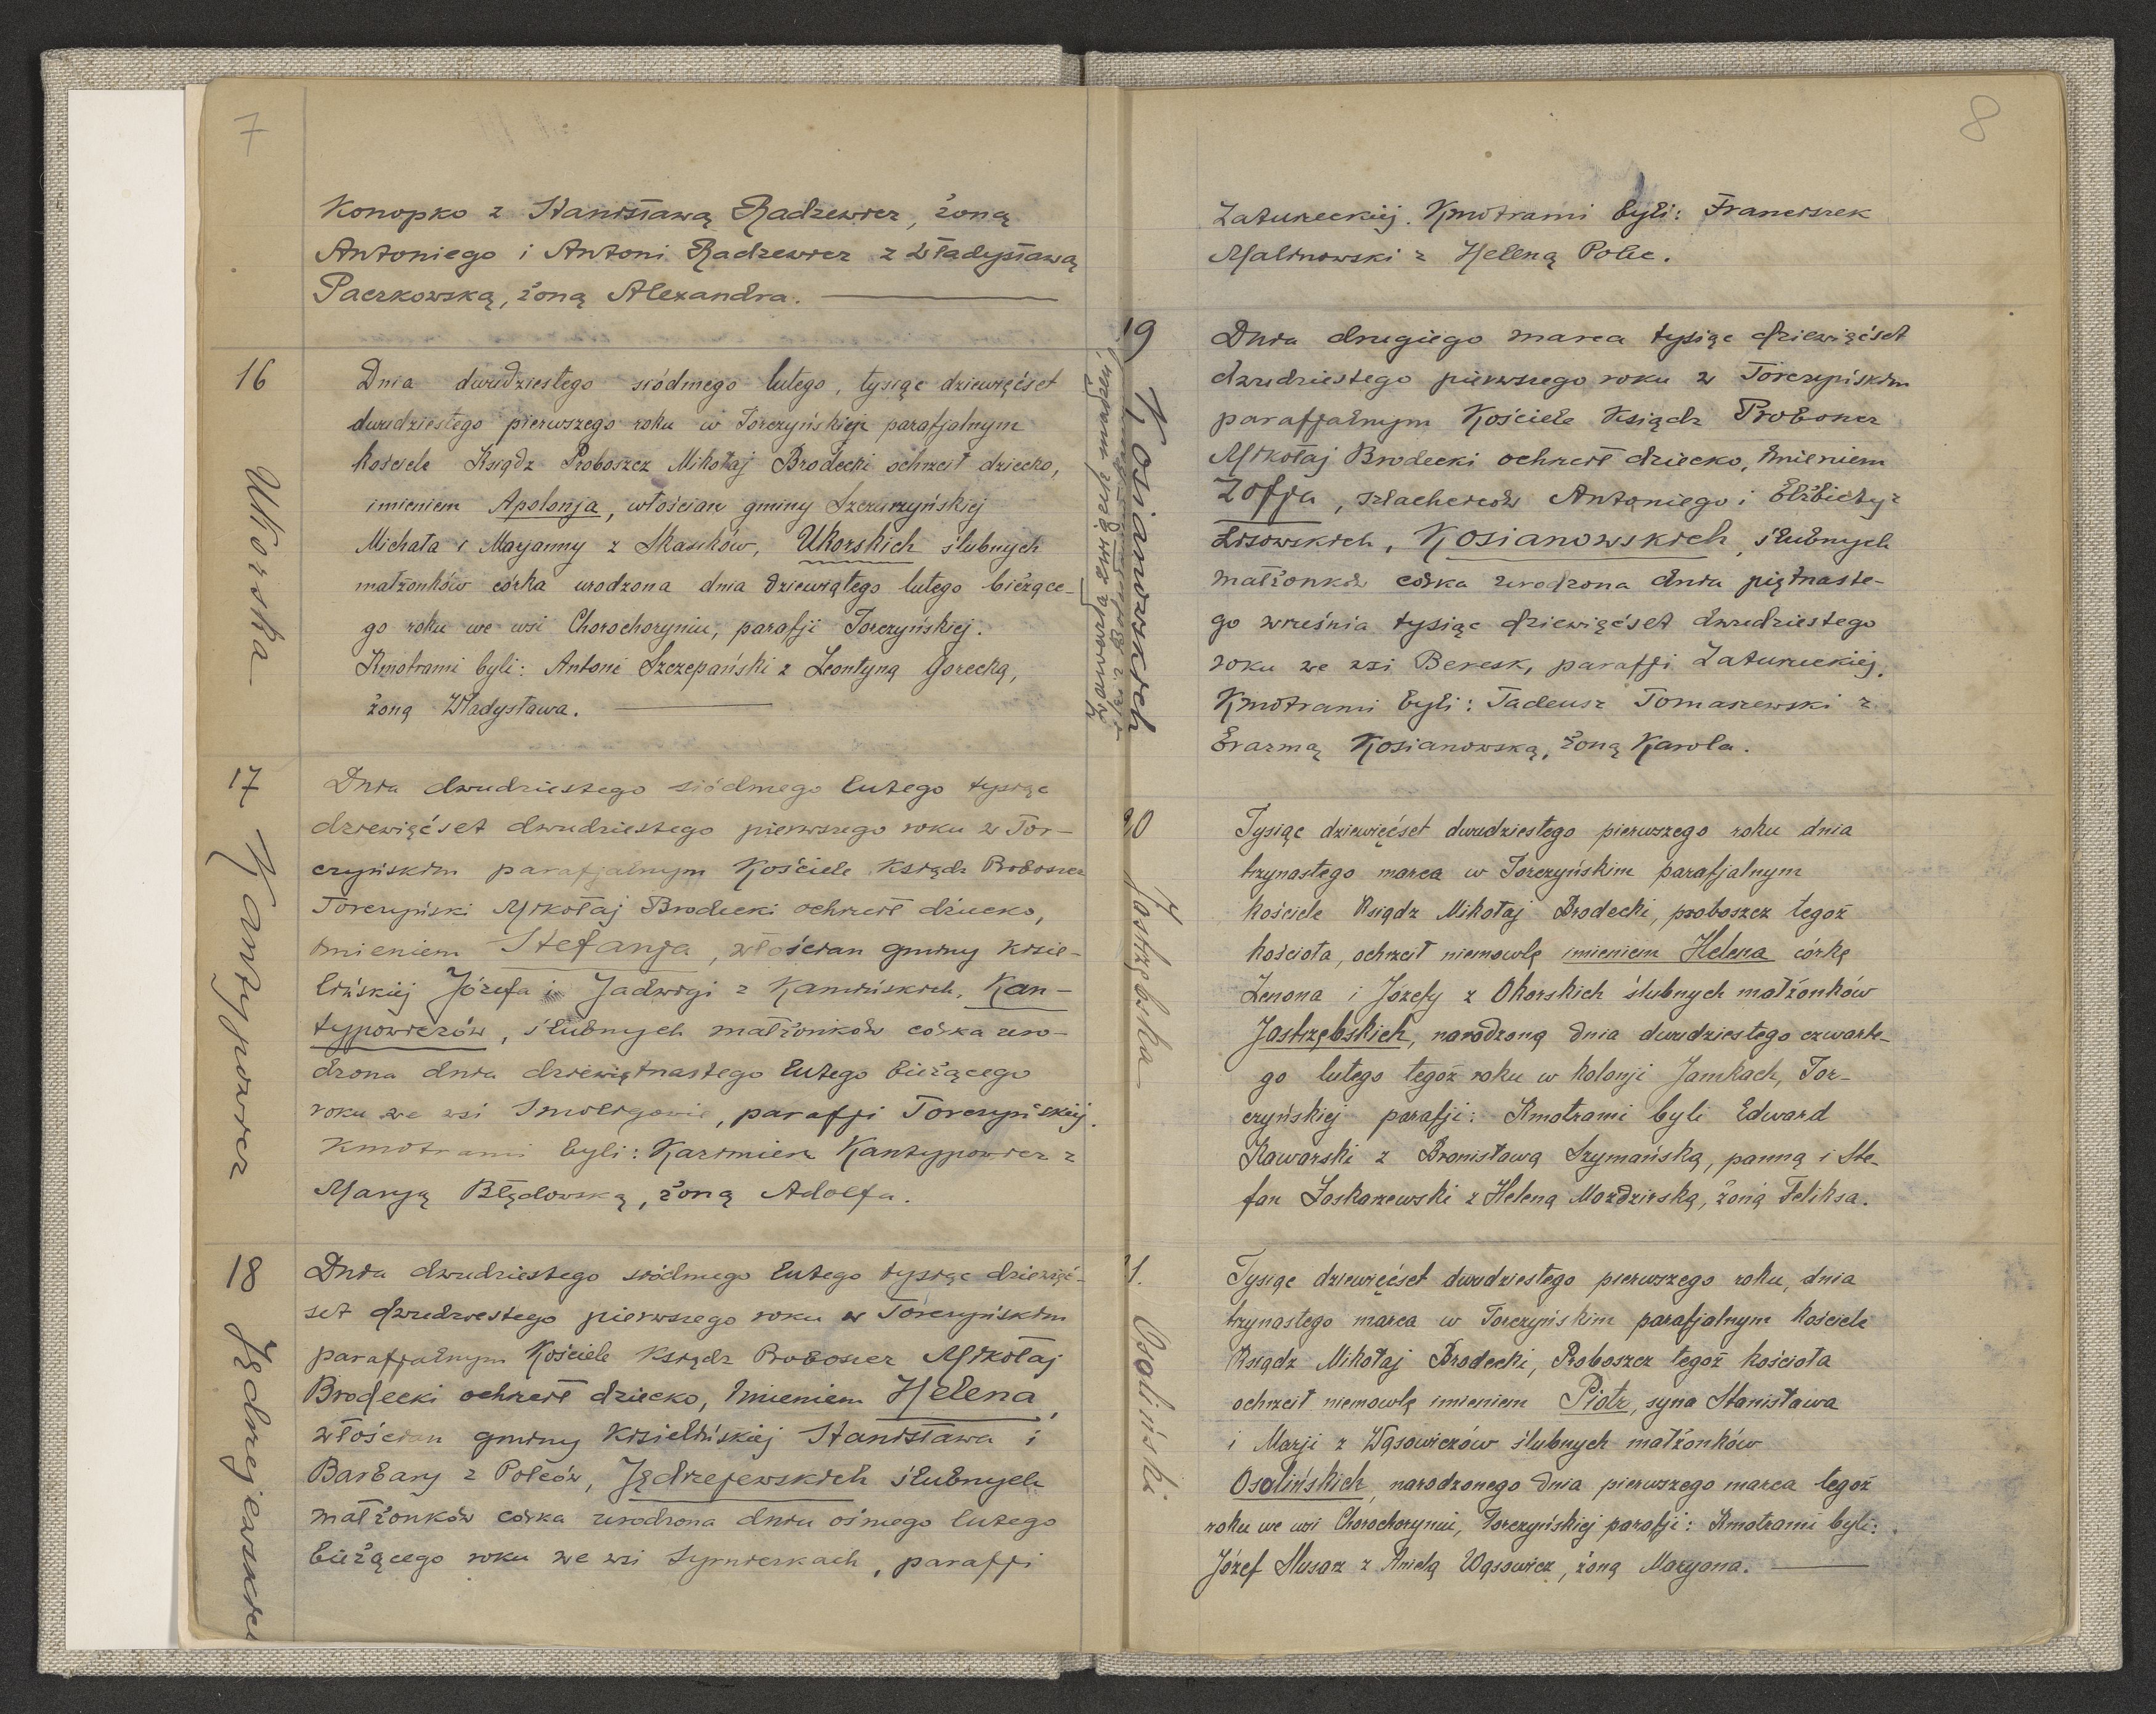 7
Konopko z Stanisławą Radzewicz, żoną
Antoniego i Antoni Radzewicz z Władysławą
Paczkowską, żoną Alexandra.
16
Ukorska
Dnia dwudziestego siódmego lutego, tysiąc dziewięćset
dwudziestego pierwszego roku w Torczyńskiej parafjalnym
kościele Ksiądz Proboszcz Mikołaj Brodecki ochrzcił dziecko,
imieniem Apolonja, włościan gminy Szczurzyńskiej
Michała i Maryanny z Skasików, Ukorskich ślubnych
małżonków córka urodzona dnia dziewiątego lutego bieżące-
go roku we wsi Chorochoryniu, parafji Torczyńskiej.
Kmotrami byli: Antoni Szczepański z Leontyną Gorecką,
żoną Władysława.
17
Kantypowicz
Dnia dwudziestego siódmego lutego tysiąc
dziewięćset dwudziestego pierwszego roku w Tor-
czyńskim parafjalnym Kościele Ksiądz Proboszcz
Torczyński Mikołaj Brodecki ochrzcił dziecko,
imieniem Stefanja, włościan gminy Kisie-
lińskiej Józefa i Jadwigi z Kamińskich, Kan-
typowiczów, ślubnych małżonków córka uro-
dzona dnia dziewiętnastego lutego bieżącego
roku we wsi Smoligowie, parafji Torczyńskiej.
Kmotrami byli: Kazimierz Kantypowicz z
Marją Błędowską, żoną Adolfa.
18
Jędrzejewskich
Dnia dwudziestego siódmego lutego tysiąc dziewięć-
set dwudziestego pierwszego roku w Torczyńskim
parafjalnym Kościele Ksiądz Proboszcz Mikołaj
Brodecki ochrzcił dziecko, imieniem Helena,
włościan gminy Kisielińskiej Stanisława i
Barbary z Polców, Jędrzejewskich ślubnych
małżonków córka urodzona dnia ósmego lutego
bieżącego roku we wsi Syrnickach, parafji
8
Zatureckiej. Kmotrami byli: Franciszek
Malinowski z Heleną Polec.
19
Kosianowskich
Zawarła związek małżeń
Dnia drugiego marca tysiąc dziewięćset
dwudziestego pierwszego roku w Torczyńskim
parafjalnym Kościele Ksiądz Proboszcz
Mikołaj Brodecki ochrzcił dziecko, imieniem
Zofja, szlachciców Antoniego i Elżbiety z
Lisowskich, Kosianowskich, ślubnych
małżonków córka urodzona dnia piętnaste-
go września tysiąc dziewięćset dwudziestego
roku we wsi Beresk, parafji Zatureckiej.
Kmotrami byli: Tadeusz Tomaszewski z
Erazmą Kosianowską, żoną Karola.
20
Jastrzębska
Tysiąc dziewięćset dwudziestego pierwszego roku dnia
trzynastego marca w Torczyńskim parafjalnym
kościele Ksiądz Mikołaj Brodecki, proboszcz tegoż
kościoła, ochrzcił niemowlę imieniem Helena córkę
Zenona i Józefy z Okorskich ślubnych małżonków
Jastrzębskich, narodzoną dnia dwudziestego czwarte-
go lutego tegoż roku w kolonji Jamkach, Tor-
czyńskiej parafji: Kmotrami byli Edward
Kaworski z Bronisławą Szymańską, panną i Ste-
fan Zaskorzewski z Heleną Mozdzirską, żoną Feliksa.
21.
Osoliński
Tysiąc dziewięćset dwudziestego pierwszego roku, dnia
trzynastego marca w Torczyńskim parafjalnym kościele
Ksiądz Mikołaj Brodecki, Proboszcz tegoż kościoła
ochrzcił niemowlę imieniem Piotr, syna Stanisława
i Marji z Wąsowiczów ślubnych małżonków
Osolińskich, narodzonego dnia pierwszego marca tegoż
roku we wsi Chorochoryniu, Torczyńskiej parafji: Kmotrami byli:
Józef Slusarz z Anielą Wąsowicz, żoną Maryana.